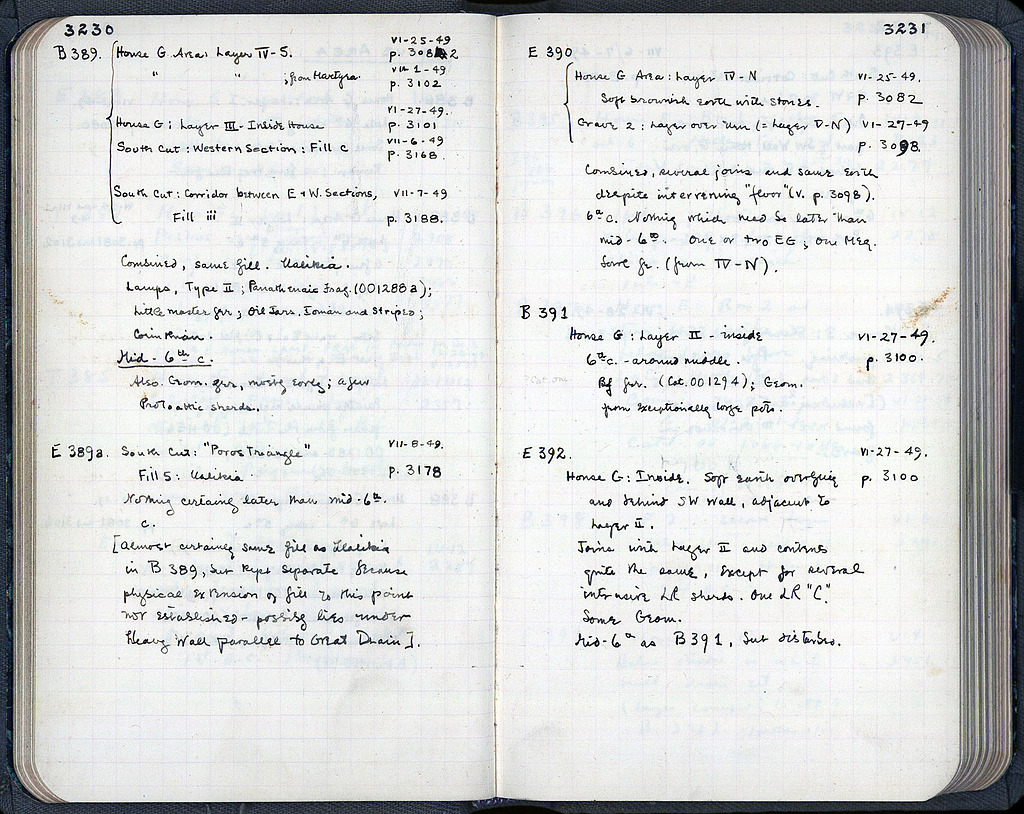 3230
B 389. House G Area: Layer IV-S. VI-25-49 p. 3082
" " ; from Martyra VII-1-49 p. 3102
House G: Layer III - Inside House VI-27-49. p. 3101
South Cut: Western Section: Fill C VII-6-49 p. 3168.
South Cut: Corridor between E + W. Sections, VII-7-49
Fill iii p. 3188.
Combined, same fill.
Lamps, Type II; Panathenaic Frag. (001288a);
Little master frr; Oil Jars, Ionian and Striped;
Corinthian.
Mid-6th c.
Also Geom. frr, mostly early; a few
Protoattic sherds.
E 389a. South Cut: "Poros Triangle" VII-8-49.
Fill 5: p. 3178
Nothing certainly later than mid-6th
c.
[Almost certainly same fill as
in B 389, but kept separate because
physical extension of fill to this point
not established - possibly lies under
Heavy Wall parallel to Great Drain].
3231
E 390
House G Area: Layer IV-N VI-25-49.
Soft brownish earth with stones. p. 3082
Grave 2: Layer over Urn (= Layer V-N) VI-27-49
p. 3098.
Combined, several joins and same earth
despite intervening "floor" (v. p. 3098).
6th c. Nothing which need be later than
mid-6th. One or two EG; one Meg.
bowl fr. (from IV-N).
B 391
House G: Layer II - inside VI-27-49.
6th c. - around middle. p. 3100.
Bf frr. (Cat. 001294); Geom.
from exceptionally large pots.
E 392. VI-27-49.
House G: Inside. Soft earth overlying p. 3100
and behind SW Wall, adjacent to
Layer II.
Joins with Layer II and contents
quite the same, except for several
intrusive LR sherds. One LR "C."
Some Geom.
Mid-6th as B 391, but disturbed.